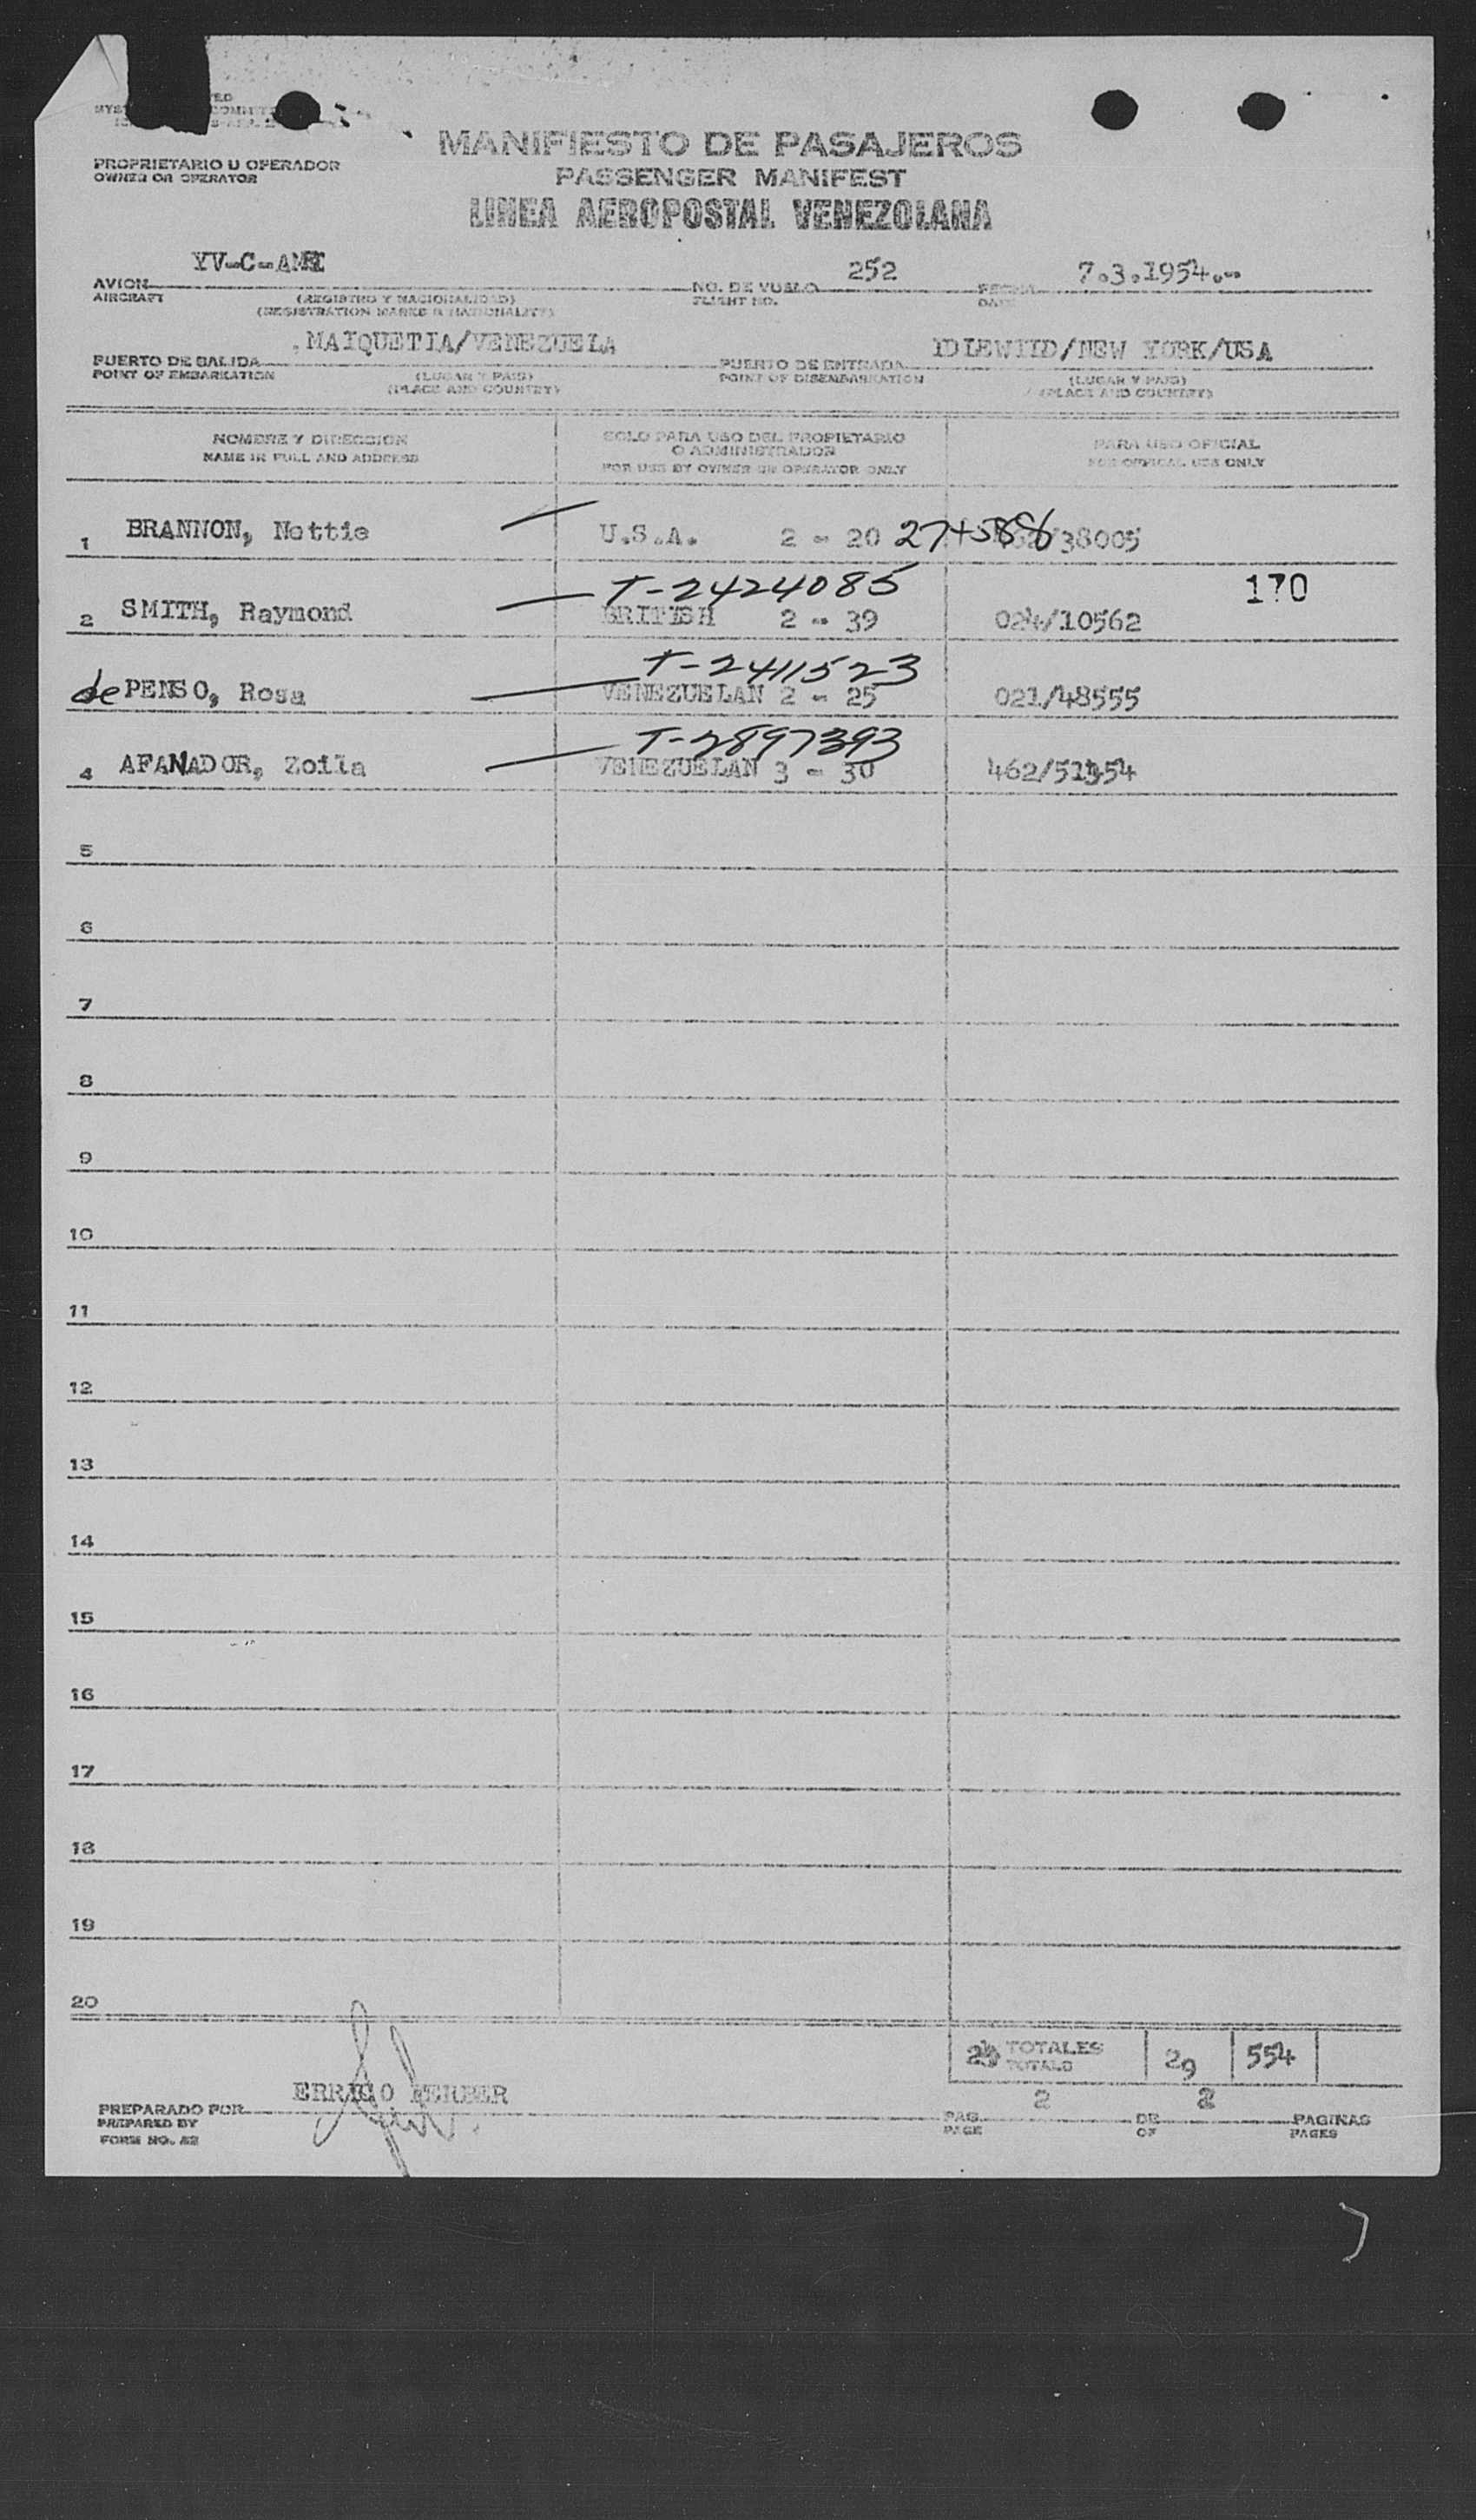 MANIFIESTO DE PASAJEROS
PROPRIETARIO U OPERADOR
OWNER OR OPERATOR
PASSENGER MANIFEST
LINEA AEROPOSTAL VENEZOLANA
YV-C-AME 252 7.3.1954.-
AVION NO. DE VUELO FECHA
AIRCRAFT (REGISTRO Y NACIONALIDAD) FLIGHT NO. DATE
(REGISTRATION MARKS & NATIONALITY)
MAIQUETIA/VENEZUELA IDLEWIID/NEW YORK/USA
PUERTO DE SALIDA PUERTO DE ENTRADA
POINT OF EMBARKATION (LUGAR Y PAIS) POINT OF DISEMBARKATION (LUGAR Y PAIS)
(PLACE AND COUNTRY) (PLACE AND COUNTRY)
NOMBRE Y DIRECCION SOLO PARA USO DEL PROPIETARIO PARA USO OFICIAL
O ADMINISTRADOR
NAME IN FULL AND ADDRESS FOR USE BY OWNER OR OPERATOR ONLY FOR OFFICAL USE ONLY
1 BRANNON, Nettie U.S.A. 2 - 20 38005
T-2424085 170
2 SMITH, Raymond BRITISH 2 - 39 024/10562
T-2411523
de PENSO, Rosa VENEZUELAN 2 - 25 021/48555
T-2897393
4 AFANADOR, Zoila VENEZUELAN 3 - 30
5
6
7
8
9
10
11
12
13
14
15
16
17
18
19
20
TOTALES 29 554
TOTALS
PREPARADO POR 2 2
PREPARED BY PAG. DE PAGINAS
FORM NO. 52 PAGE OF PAGES